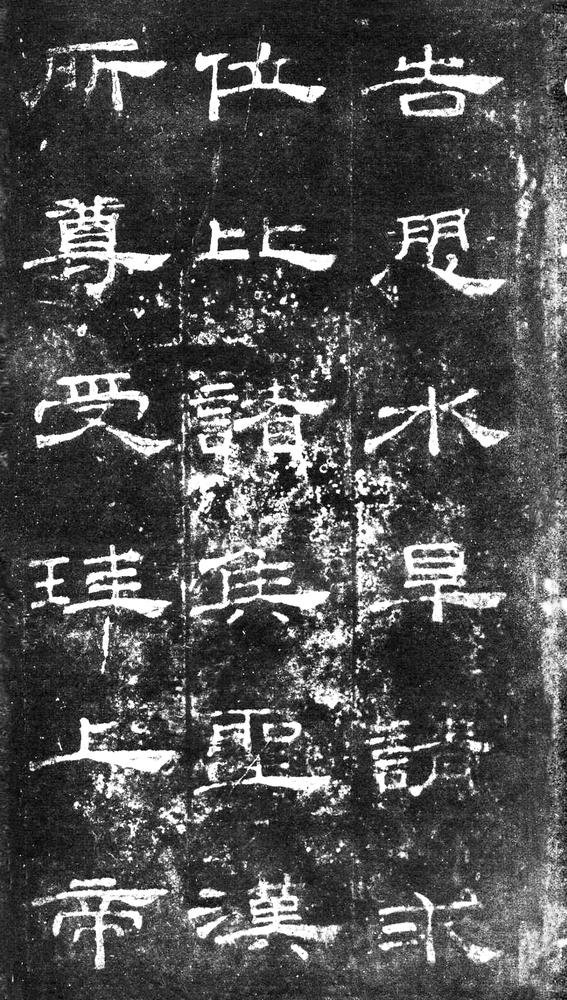 告愬水旱請求
位比諸侯聖漢
所尊受珪上帝